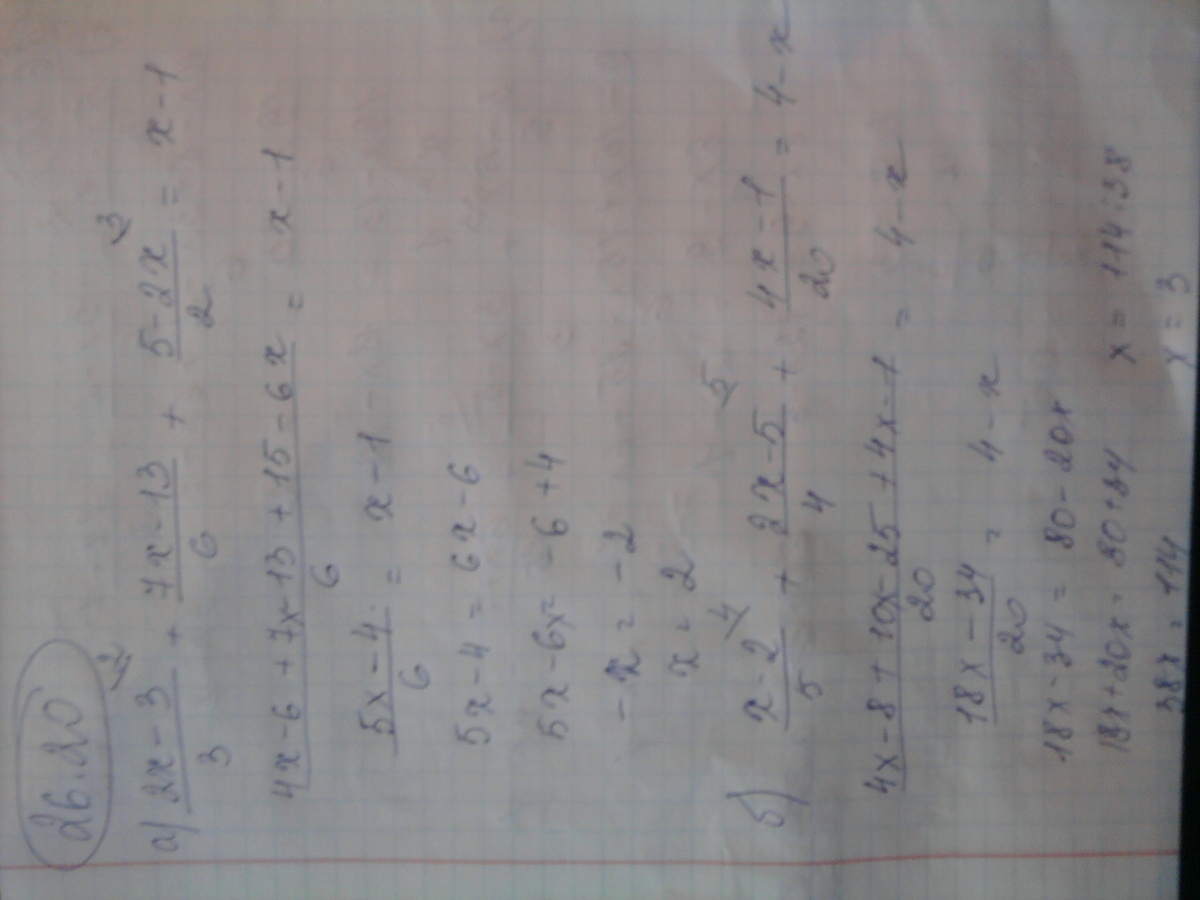 26.20
а) (2x-3)/3 ^2 + (7x-13)/6 + (5-2x)/2 ^3 = x-1
(4x-6+7x-13+15-6x)/6 = x-1
(5x-4)/6 = x-1
5x-4 = 6x-6
5x-6x = -6+4
-x = -2
x = 2
б) (x-2)/5 ^4 + (2x-5)/4 ^5 + (4x-1)/20 = 4-x
(4x-8+10x-25+4x-1)/20 = 4-x
(18x-34)/20 = 4-x
18x-34 = 80-20x
18x+20x = 80+34 x = 114:38
38x = 114 x = 3